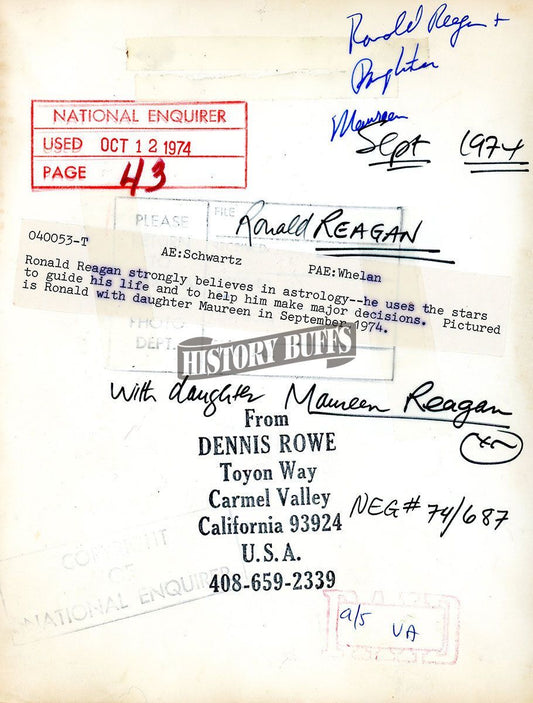 Ronald Reagan +
Daughter
Maureen
Sept 1974
NATIONAL ENQUIRER
USED OCT 12 1974
PAGE 43
PLEASE
FILE
Ronald REAGAN
040053-T
AE:Schwartz PAE:Whelan
Ronald Reagan strongly believes in astrology--he uses the stars
to guide his life and to help him make major decisions. Pictured
is Ronald with daughter Maureen in September, 1974.
PHOTO
DEPT.
HISTORY BUFFS
With daughter Maureen Reagan
From
DENNIS ROWE
Toyon Way
Carmel Valley
California 93924
U.S.A.
408-659-2339
NEG# 74/687
COPYRIGHT
OF
NATIONAL ENQUIRER
a/5
VA